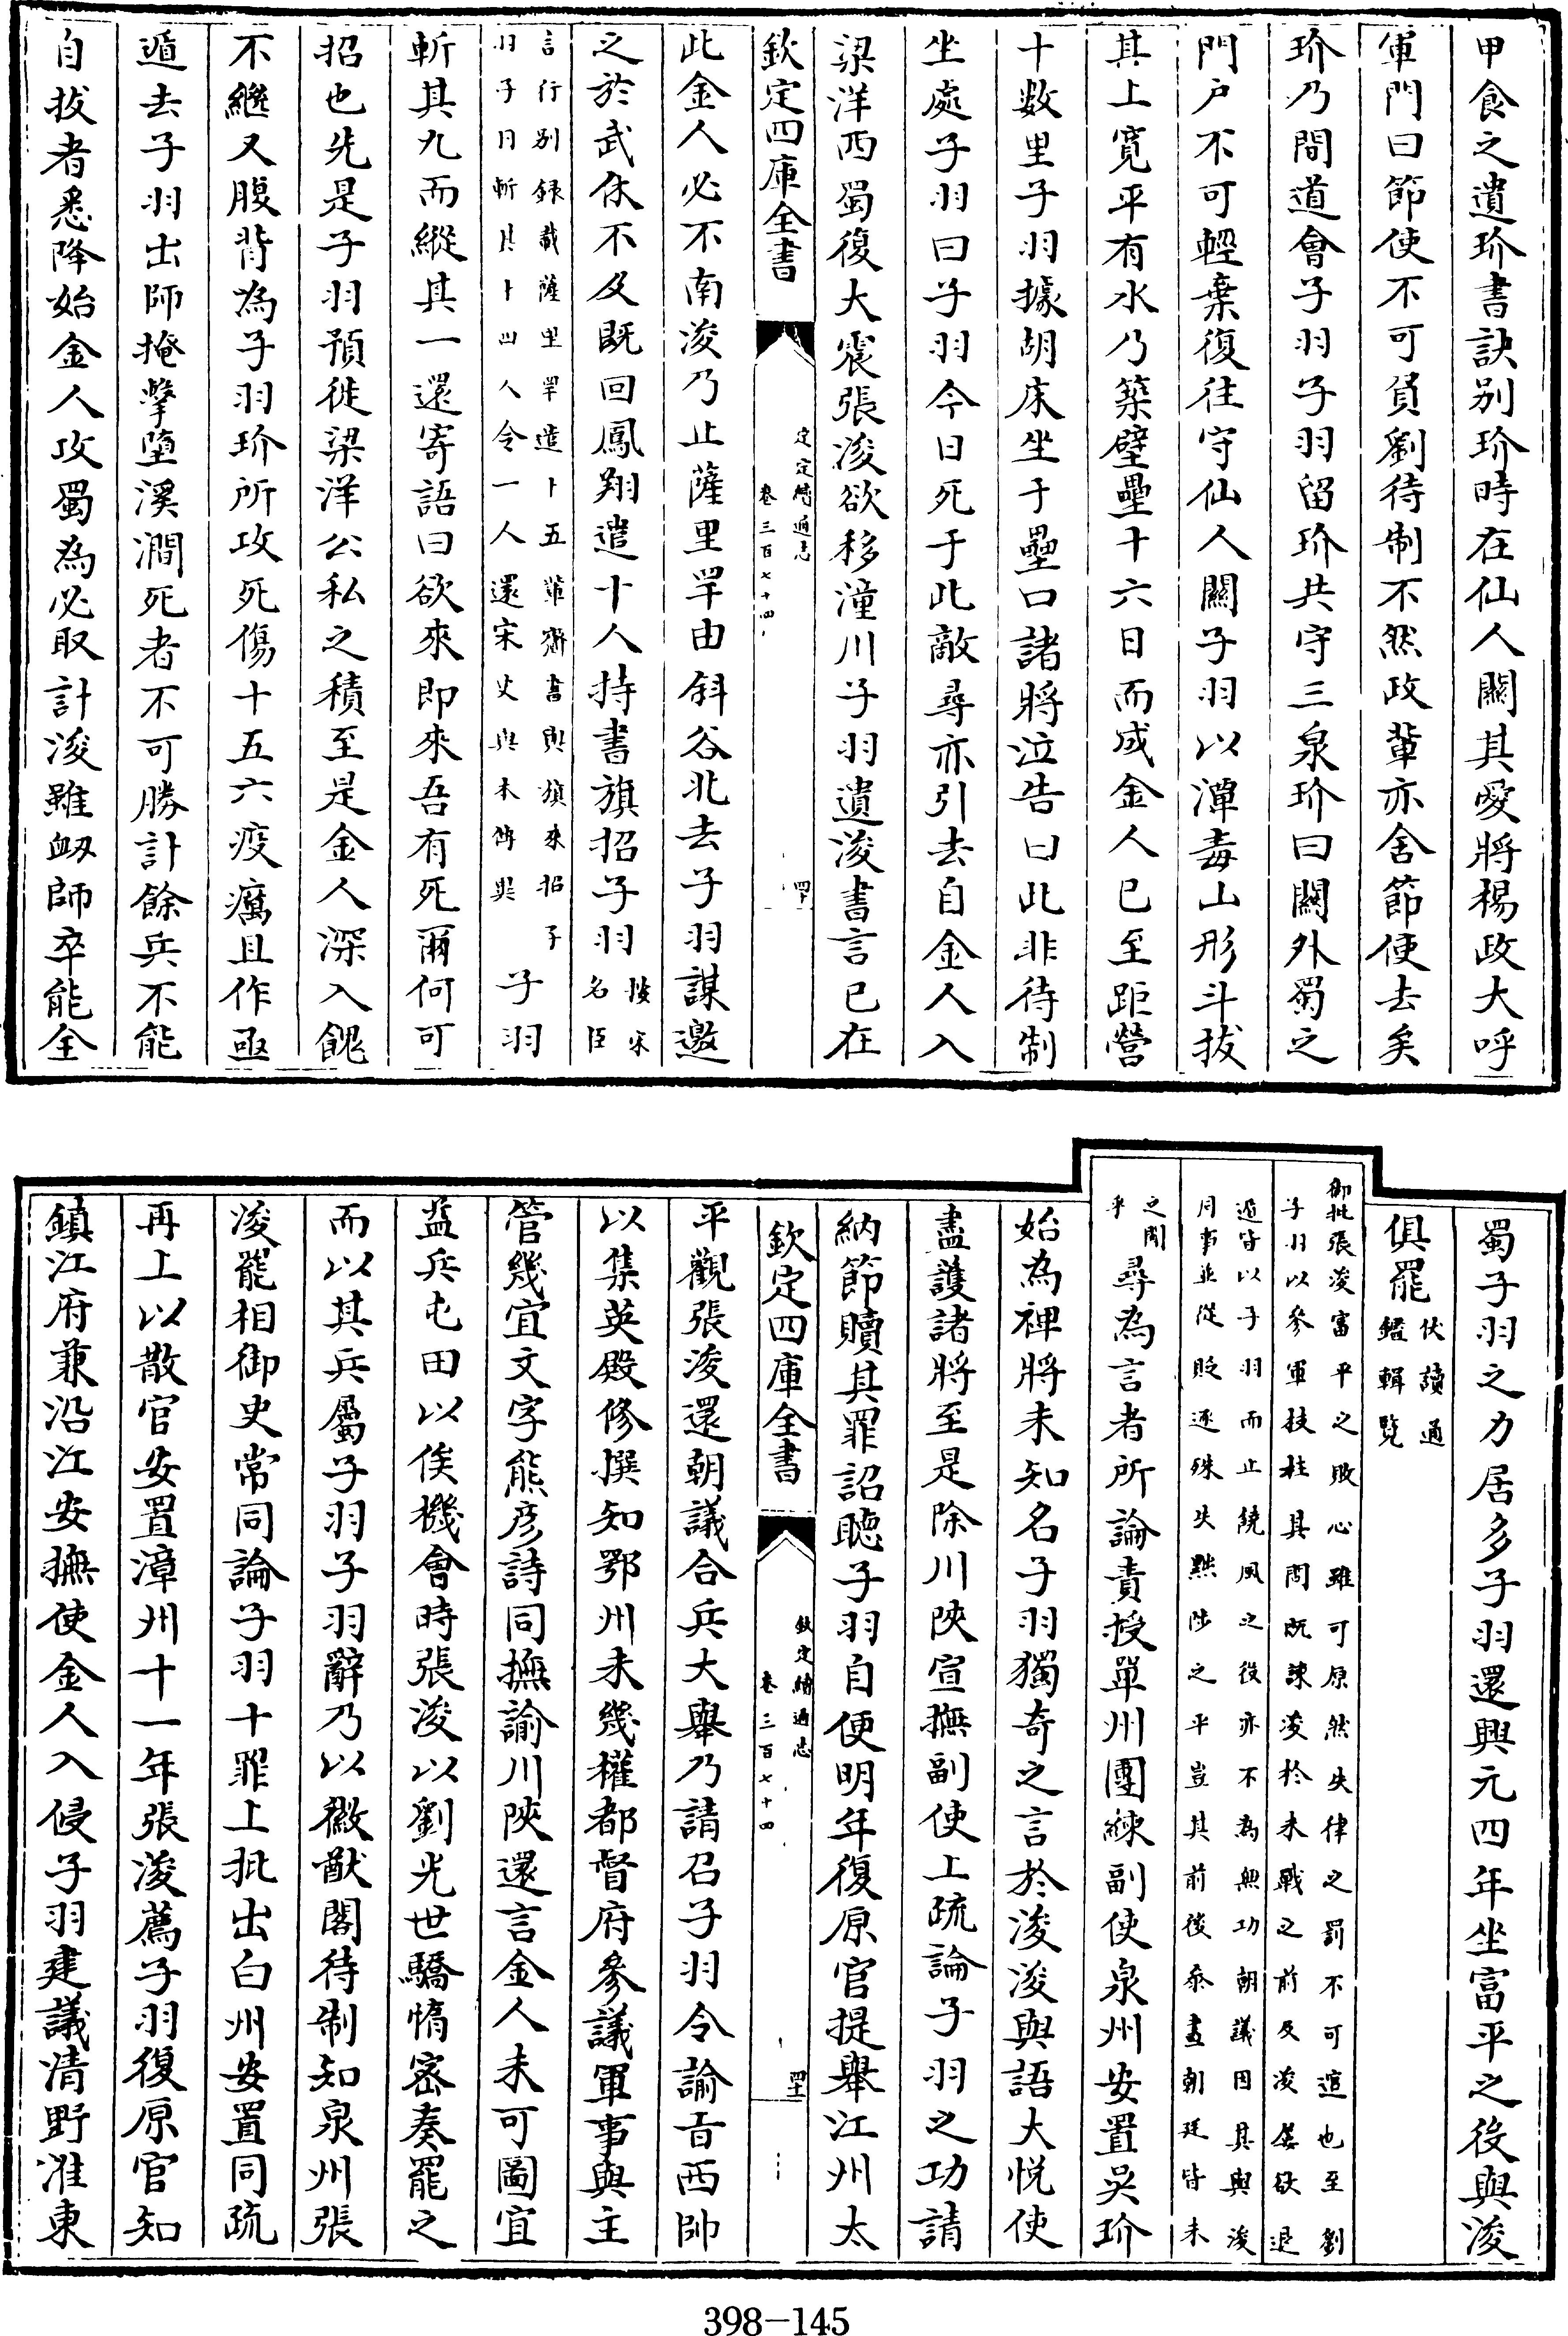 甲食之遺玠書訣别玠時在仙人關其愛將楊政大呼
軍門曰節使不可負劉待制不然政輩亦舍節使去矣
玠乃間道會子羽子羽留玠共守三泉玠曰關外蜀之
門户不可輕棄復往守仙人關子羽以潭毒山形斗拔
其上寛平有水乃築壁壘十六日而成金人已至距營
十數里子羽據胡床坐于壘口諸將泣告曰此非待制
坐處子羽曰子羽今日死于此敵尋亦引去自金人入
梁洋西蜀復大震張浚欲移潼川子羽遺浚書言已在
欽定四庫全書
欽定續通志
卷三百七十四
四十
此金人必不南浚乃止薩里罕由斜谷北去子羽謀邀
之於武休不及既回鳳翔遣十人持書旗招子羽按宋
名臣
言行别録載薩里罕遣十五輩齎書與旗來招子
羽子羽斬其十四人令一人還宋史與本傳異子羽
斬其九而縱其一還寄語曰欲來即來吾有死爾何可
招也先是子羽預徙梁洋公私之積至是金人深入餽
不繼又腹背為子羽玠所攻死傷十五六疫癘且作亟
遁去子羽出師掩擊墮溪澗死者不可勝計餘兵不能
自拔者悉降始金人攻蜀為必取計浚雖衂師卒能全
蜀子羽之力居多子羽還興元四年坐富平之役與浚
俱罷伏讀通
鑑輯覽
御批張浚富平之敗心雖可原然失律之罰不可逭也至劉
子羽以參軍技柱其間既諫浚於未戰之前及浚屢欲退
遁皆以子羽而止饒風之役亦不為無功朝議因其與浚
同事並從貶逐殊失黜陟之平豈其前後泰畫朝廷皆未
之聞
乎尋為言者所論責授單州團練副使泉州安置吳玠
始為裨將未知名子羽獨奇之言於浚浚與語大悦使
盡護諸將至是除川陜宣撫副使上疏論子羽之功請
納節贖其罪詔聽子羽自便明年復原官提舉江州太
欽定四庫全書
欽定續通志
卷三百七十四
四十一
平觀張浚還朝議合兵大舉乃請召子羽令諭㫖西帥
以集英殿修撰知鄂州未幾權都督府參議軍事與主
管幾宜文字熊彦詩同撫諭川陜還言金人未可圖宜
益兵屯田以俟機會時張浚以劉光世驕惰密奏罷之
而以其兵屬子羽子羽辭乃以徽猷閣待制知泉州張
浚罷相御史常同論子羽十罪上批出白州安置同疏
再上以散官安置漳州十一年張浚薦子羽復原官知
鎮江府兼沿江安撫使金人入侵子羽建議清野淮東
398-145